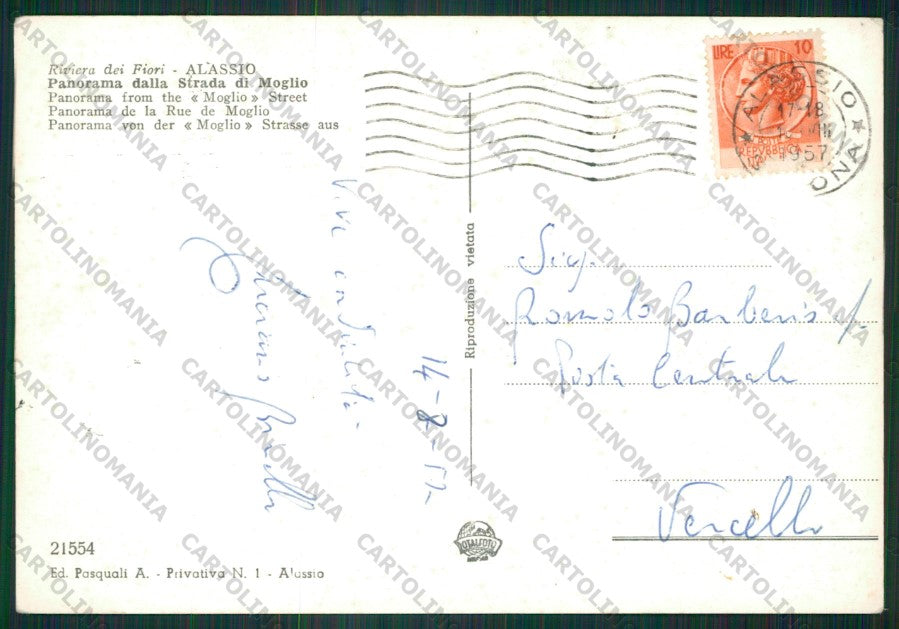 Riviera dei Fiori - ALASSIO
Panorama dalla Strada di Moglio
Panorama from the « Moglio » Street
Panorama de la Rue de Moglio
Panorama von der « Moglio » Strasse aus
LIRE 10
ALASSIO
17-18
1957
Vive cordialità
14-8-57
Riproduzione vietata
Sig.
Romolo Barberis
Posta Centrale
Vercelli
21554
Ed. Pasquali A. - Privativa N. 1 - Alassio
TOTALFOTO
CARTOLINOMANIA